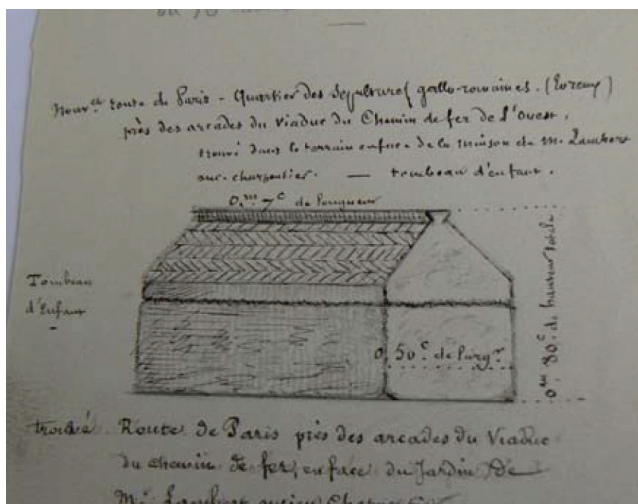 Nouv.elle route de Paris - Quartier des Sépultures gallo-romaines. (Evreux)
près des arcades du Viaduc du Chemin de fer de l'Ouest,
trouvé dans le terrain en face de la maison de Mr. Lambert
anc. charpentier. — tombeau d'enfant.
0.m 7c de longueur
Tombeau
d'Enfant
0,50c de larg.r
0m 80c de hauteur totale
trouvé Route de Paris près des arcades du Viaduc
du chemin de fer, en face du Jardin de
Mr. Lambert ancien